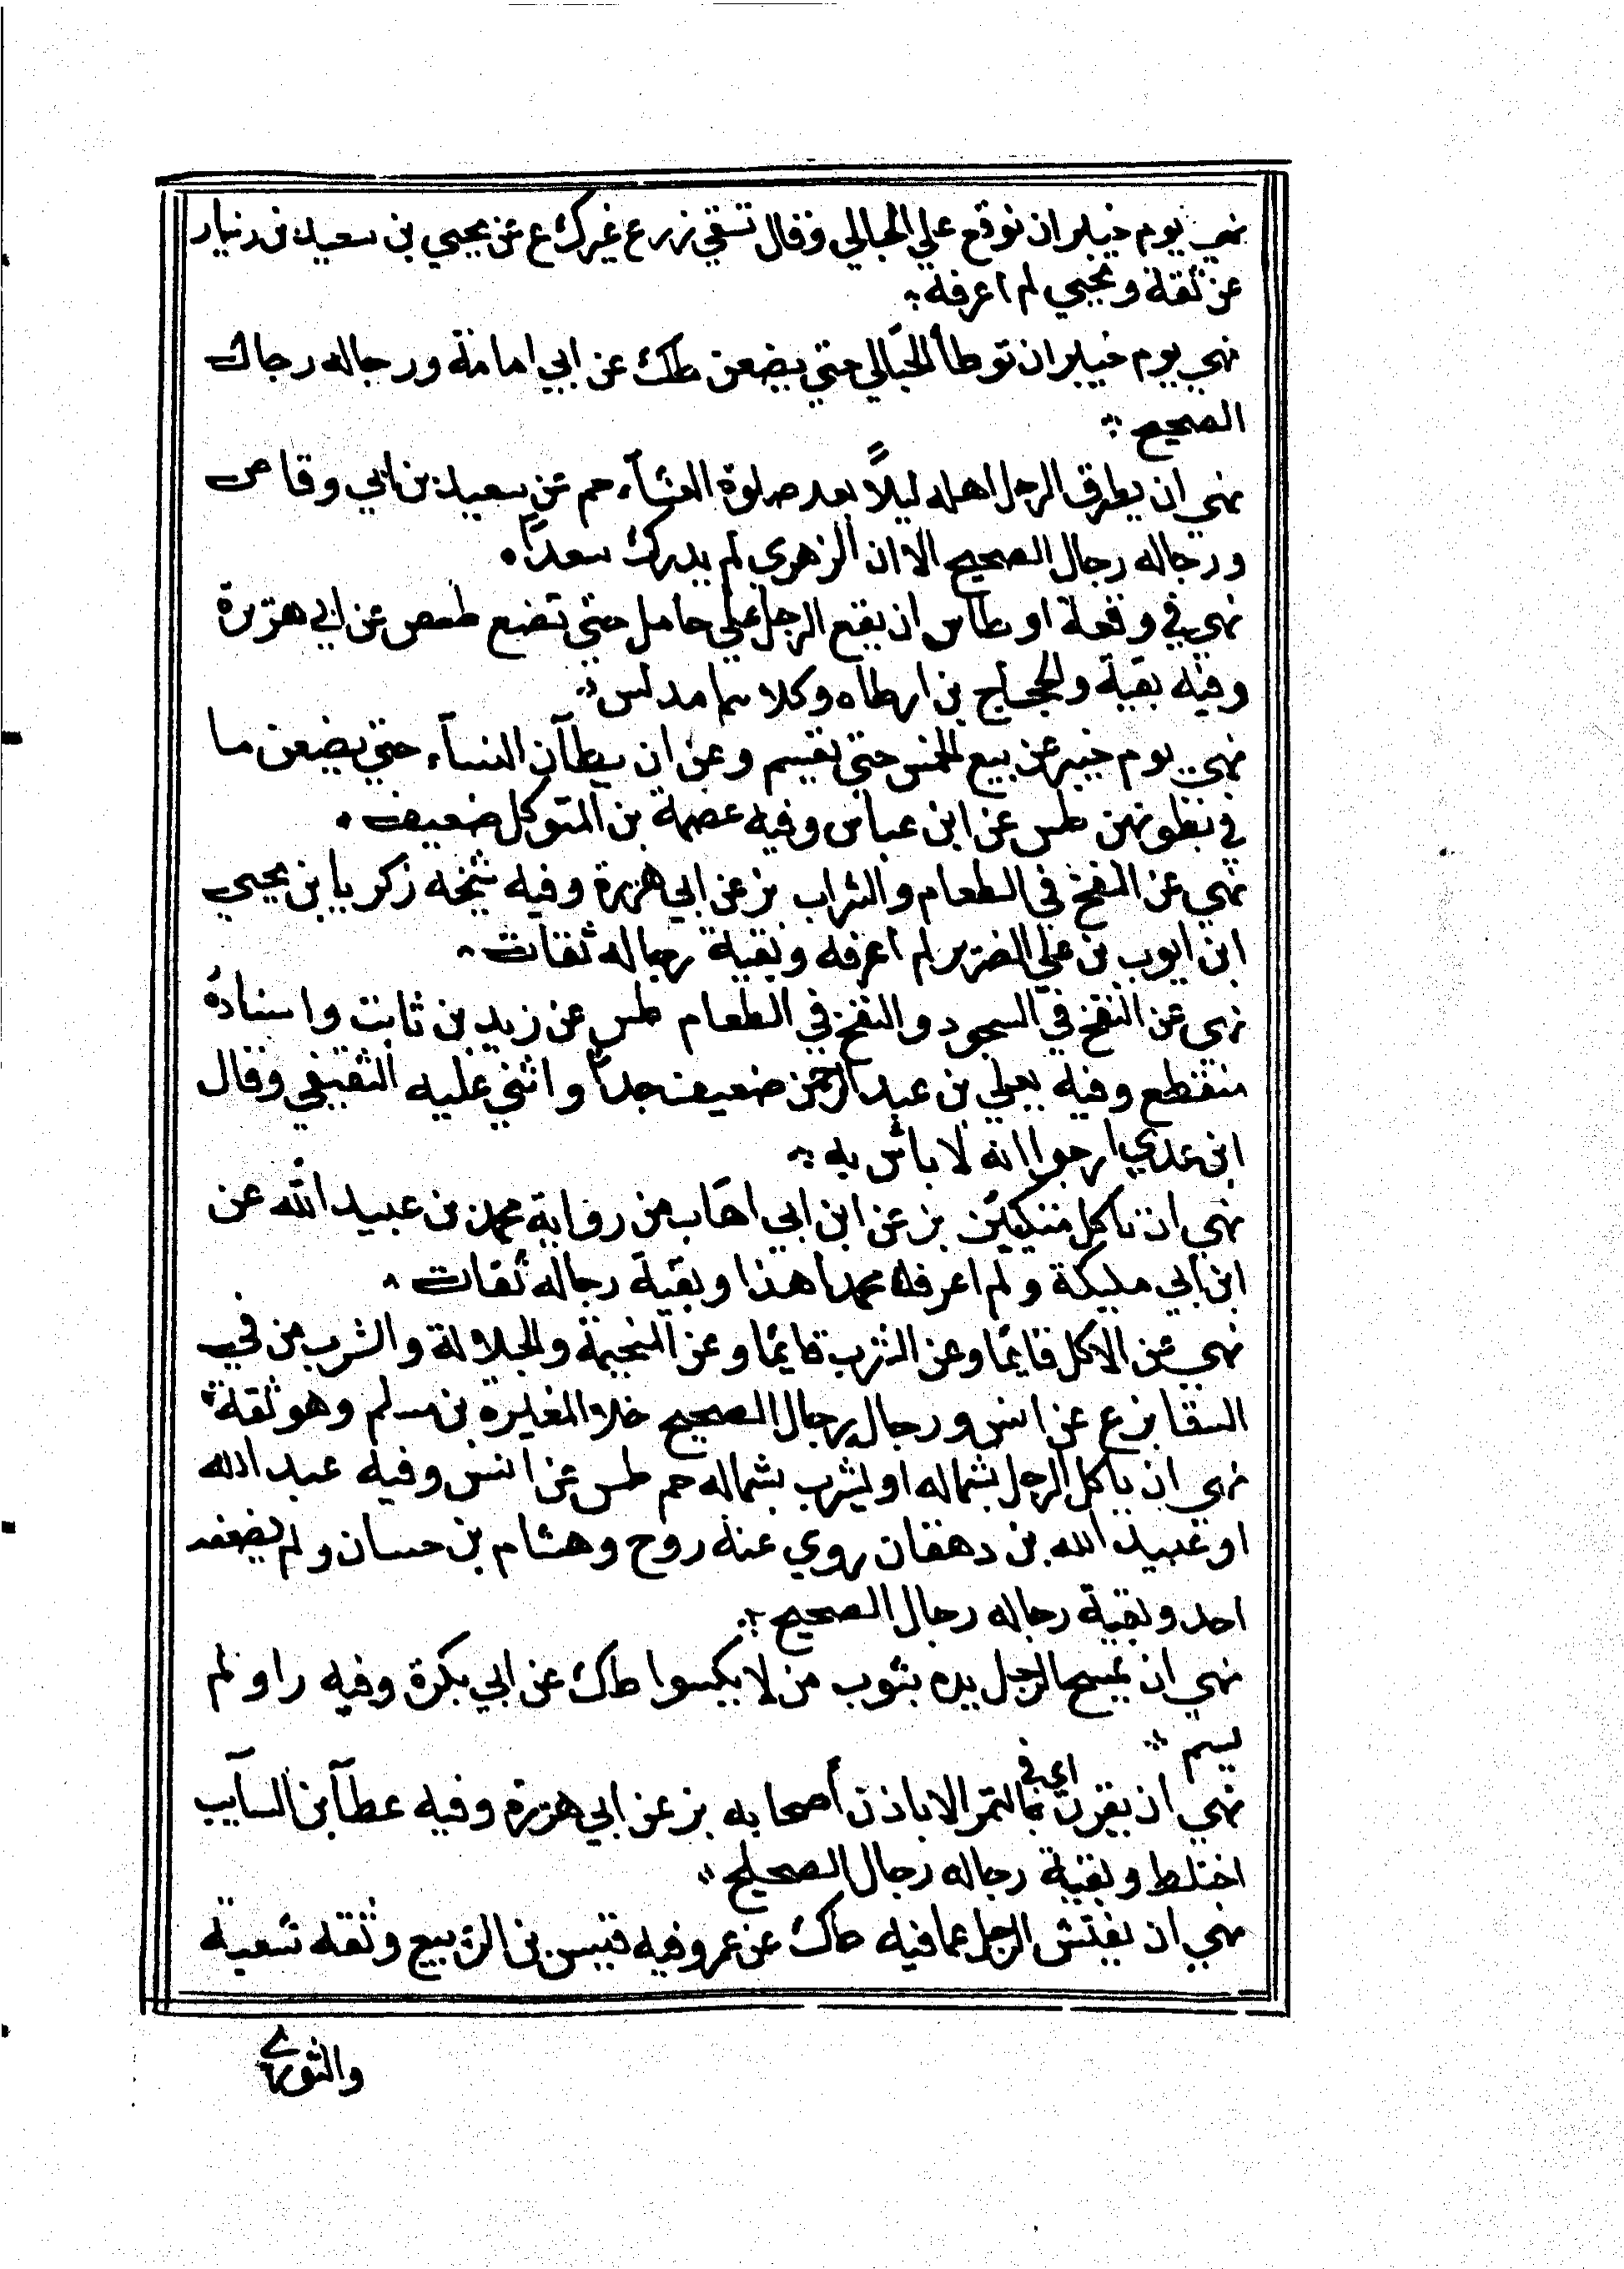 نهي يوم خيبر ان نوقع علي الحبالي وقال تسقي زرع غيرك ع عن يحيي بن سعيد بن دينار
عن ثقة ويحيي لم اعرفه
نهي يوم خيبر ان توطأ الحبالي حتي يضعن طك عن ابي امامة ورجاله رجال
الصحيح
نهي ان يطرق الرجل اهله ليلاً بعد صلوة العشآء حم عن سعيد بن ابي وقاص
ورجاله رجال الصحيح الا ان الزهري لم يدرك سعداً
نهي في وقعة اوطاس ان يقع الرجل علي حامل حتي تضع طعص عن ابي هريرة
وفيه بقية والحجاج بن ارطاه وكلاهما مدلس
نهي يوم خيبر عن بيع الخمس حتي تقيسم وعن ان يطآن النسآء حتي يضعن ما
في بطونهن طس عن ابن عباس وفيه عصمة بن المتوكل ضعيف
نهي عن النفخ في الطعام والشراب بز عن ابي هريرة وفيه شيخه زكريا بن يحيي
ابن ايوب بن علي الضرير لم اعرفه وبقية رجاله ثقات
نهي عن النفخ في السجود والنفخ في الطعام طس عن زيد بن ثابت واسناده
منقطع وفيه يعلي بن عبد الرحمن ضعيف جداً واثني عليه الثقيفي وقال
ابن عدي ارجوا انه لا باس به
نهي ان ناكل متكيين بز عن ابن ابي اهاب من رواية محمد بن عبيد الله عن
ابن ابي مليكة ولم اعرف محمداً هذا وبقية رجاله ثقات
نهي عن الاكل قايما وعن الشرب قايما وعن المجثمة والجلالة والشرب من في
السقا بز ع عن انس ورجاله رجال الصحيح خلا المغيره بن مسلم وهو ثقة
نهي ان ياكل الرجل بشماله او ليشرب بشماله حم طس عن انس وفيه عبد الله
او عبيد الله بن دهقان روي عنه روح وهشام بن حسان ولم يضعفه
احد وبقية رجاله رجال الصحيح
نهي ان يمسح الرجل يده بثوب من لا يكسوا طك عن ابي بكرة وفيه راو لم
يسم
نهي ان يقرن بالتمر الا باذن أصحابه بز عن ابي هريرة وفيه عطآ بن السآيب
اختلط وبقية رجاله رجال الصحيح
نهي ان يفتش الرجل عما فيه طك عن عمر وفيه قيس بن الربيع وثقه شعبة
والثوري